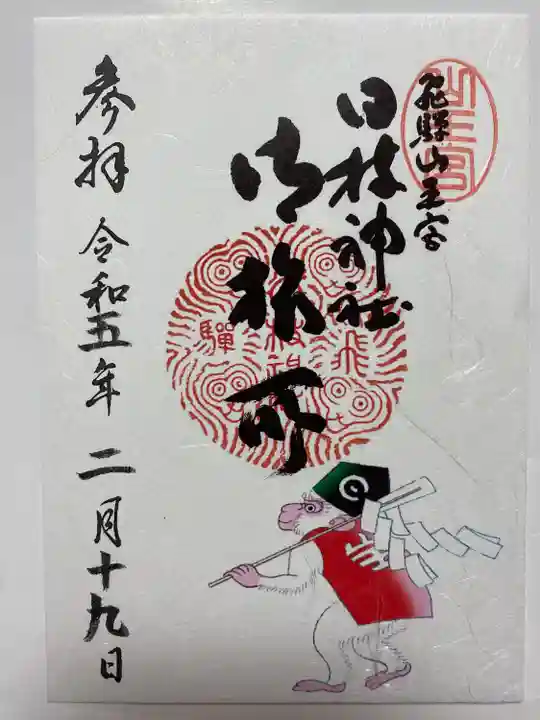 飛騨山王宮
日枝神社
御旅所
参拝 令和五年 二月十九日
山王宮
飛
驒